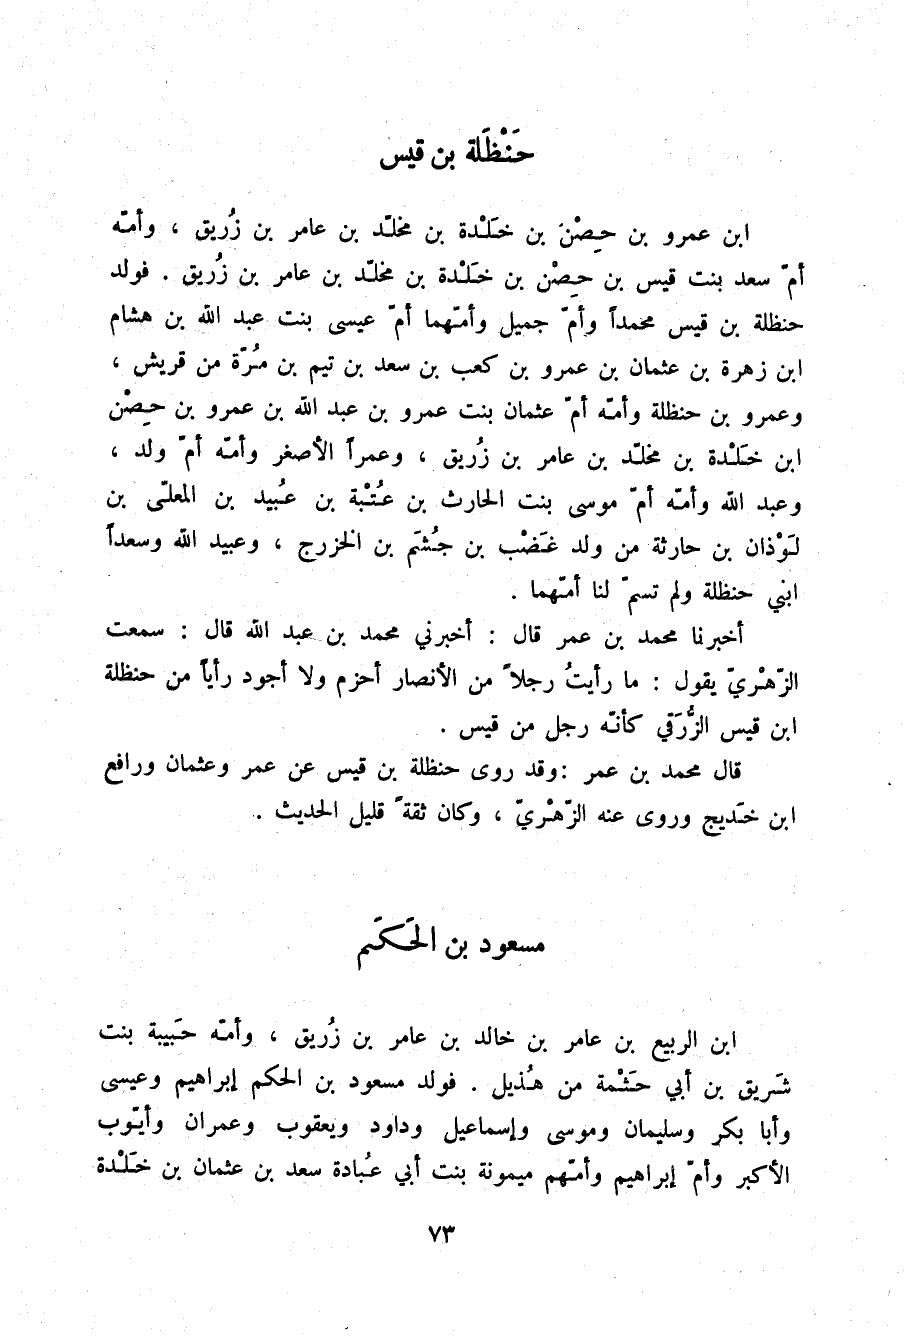 حَنْظَلة بن قيس
ابن عمرو بن حِصْن بن خَلْدة بن مخلّد بن عامر بن زُريق ، وأمّه
أمّ سعد بنت قيس بن حِصْن بن خَلْدة بن مخلّد بن عامر بن زُريق . فولد
حنظلة بن قيس محمداً وأمّ جميل وأمّهما أمّ عيسى بنت عبد الله بن هشام
ابن زهرة بن عثمان بن عمرو بن كعب بن سعد بن تيم بن مُرّة من قريش ،
وعمرو بن حنظلة وأمّه أمّ عثمان بنت عمرو بن عبد الله بن عمرو بن حِصْن
ابن خَلْدة بن مخلّد بن عامر بن زُريق ، وعمراً الأصغر وأمّه أمّ ولد ،
وعبد الله وأمّه أمّ موسى بنت الحارث بن عُتْبة بن عُبيد بن المعلّى بن
لَوْذان بن حارثة من ولد غَضْب بن جُشَم بن الخزرج ، وعبيد الله وسعداً
ابني حنظلة ولم تسمّ لنا أمّهما .
أخبرنا محمد بن عمر قال : أخبرني محمد بن عبد الله قال : سمعت
الزّهْريّ يقول : ما رأيتُ رجلاً من الأنصار أحزم ولا أجود رأياً من حنظلة
ابن قيس الزُّرَقي كأنّه رجل من قيس .
قال محمد بن عمر :وقد روى حنظلة بن قيس عن عمر وعثمان ورافع
ابن خَديج وروى عنه الزّهْريّ ، وكان ثقةً قليل الحديث .
مسعود بن الحَكَم
ابن الربيع بن عامر بن خالد بن عامر بن زُريق ، وأمّه حَبيبة بنت
شَريق بن أبي حَثْمة من هُذيل . فولد مسعود بن الحكم إبراهيم وعيسى
وأبا بكر وسليمان وموسى وإسماعيل وداود ويعقوب وعمران وأيّوب
الأكبر وأمّ إبراهيم وأمّهم ميمونة بنت أبي عُبادة سعد بن عثمان بن خَلْدة
٧٣